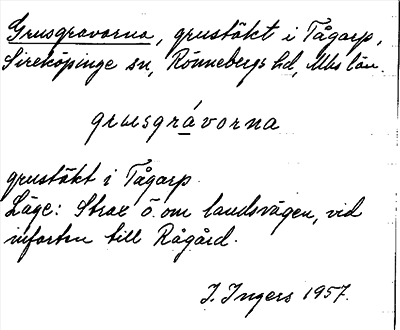 Grusgravorna, grustäkt i Tågarp,
Sireköpinge sn, Rönnebergs hd, Mhs län.
grusgrávorna
grustäkt i Tågarp.
Läge: Strax ö. om landsvägen, vid
infarten till Rågård.
I. Ingers 1957.